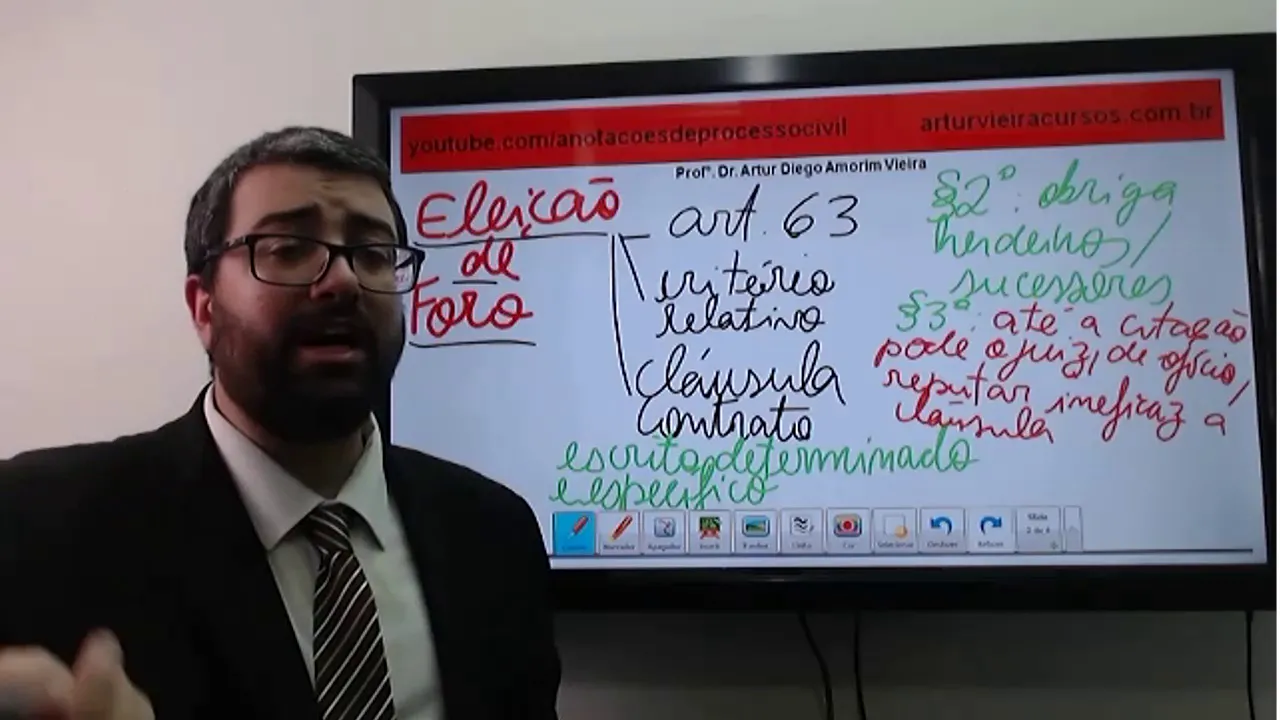 youtube.com/anotacoesdeprocessocivil
arturvieiracursos.com.br
Profº. Dr. Artur Diego Amorim Vieira
Eleição
de
Foro
art. 63
critério
relativo
cláusula
contrato
escrito, determinado
e específico
§2º: obriga
herdeiros/
sucessores
§3º: até a citação
pode o juiz, de ofício,
reputar ineficaz a
cláusula
Apagador
Selecionar
Desfazer
Refazer
Slide
2 de 4